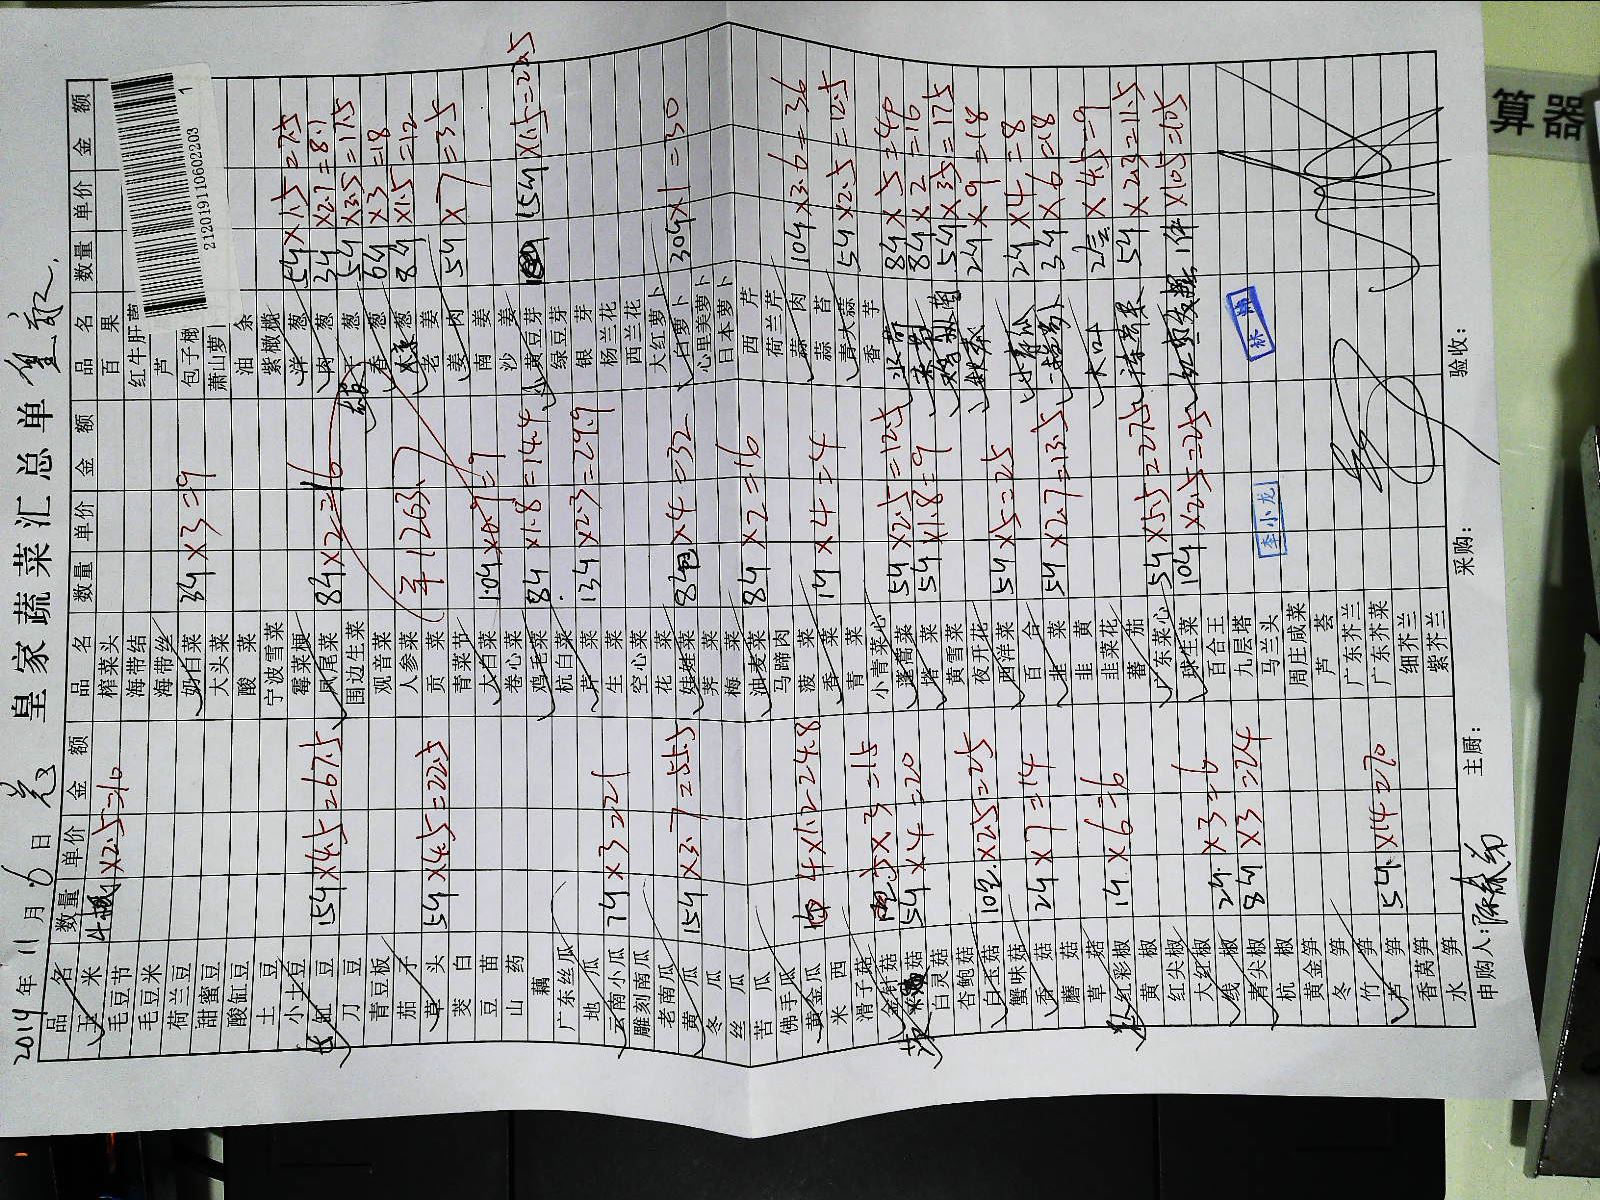 2019年11月6日
皇家蔬菜汇总单
品名 数量 单价 金额
玉米 ×2.5=10
毛豆节
毛豆米
荷兰豆
甜蜜豆
酸缸豆
土豆
小土豆
缸豆 15斤×4.5=67.5
刀豆
青豆板
茄子
草头 5斤×4.5=22.5
茭白
豆苗
山药
藕
广东丝瓜
地瓜
云南小瓜 7斤×3=21
雕刻南瓜
老南瓜
黄瓜 15斤×3.7=55.5
冬瓜
丝瓜
苦瓜
佛手瓜
黄金瓜 4×1.2=24.8
米西
滑子菇
金针菇 5×3=15
菇 5斤×4=20
白灵菇
杏鲍菇
白玉菇 10包×2.5=25
蟹味菇
香菇 2斤×7=14
蘑菇
草菇
红彩椒 1斤×6=6
黄椒
红尖椒
大红椒
线椒 2斤×3=6
青尖椒 8斤×3=24
杭椒
黄金笋
冬笋
竹笋
芦笋 5斤×14=70
香莴笋
水笋
品名 数量 单价 金额
榨菜头
海带结
海带丝
奶白菜 3斤×3=9
大头菜
酸菜
宁波雪菜
霉菜梗
凤尾菜 8斤×2=16
围边生菜
观音菜
人参菜
贡菜
青菜节
大白菜 10斤×0.9=9
卷心菜
鸡毛菜 8斤×1.8=14.4
杭白菜
芹菜 13斤×2.3=29.9
生菜
空心菜
花菜
娃娃菜 8包×4=32
荠菜
梅菜
油麦菜 8斤×2=16
马蹄肉
菠菜
香菜 1斤×4=4
青菜
小青菜心
蓬蒿菜 5斤×2.5=12.5
塔菜 5斤×1.8=9
黄雪菜
夜开花
西洋菜 5斤×5=25
百合
韭菜 5斤×2.7=13.5
韭黄
韭菜花
蕃茄
广东菜心 5斤×5.5=27.5
球生菜 10斤×2.5=25
百合王
九层塔
马兰头
周庄咸菜
芦荟
广东芥兰
广东芥菜
细芥兰
紫芥兰
品名 数量 单价 金额
百果
红牛肝
芦
包子榔
萧山萝
油条
紫橄榄
洋葱 5斤×1.5=7.5
肉葱 3斤×2.7=8.1
葱 5斤×3.5=17.5
香葱 6斤×3=18
葱 8斤×1.5=12
老姜
姜肉 5斤×7=35
南姜
沙姜
黄豆芽 15斤×1.5=22.5
绿豆芽
银芽
杨兰花
西兰花
大红萝卜
白萝卜 30斤×1=30
心里美萝卜
日本萝卜
西芹
荷兰芹
蒜肉 10斤×3.6=36
蒜苔
青大蒜 5斤×2.5=12.5
香芋
8斤×5=40
8斤×2=16
5斤×3.5=17.5
2斤×9=18
2斤×4=8
3斤×6=18
大口 2 ×4.5=9
5斤×2.3=11.5
1件×105=105
2120191106022​03
1
李小龙
申购人:
主厨:
采购:
验收:
算器